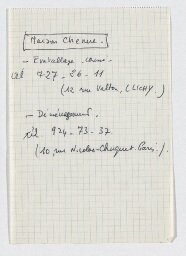 Maison Chenue.
- Emballage
tél 727-26-11
(12 rue Valton, CLICHY)
- Déménagement
tél 924-73-37
(10, rue Nicolas-Chuquet. Paris).